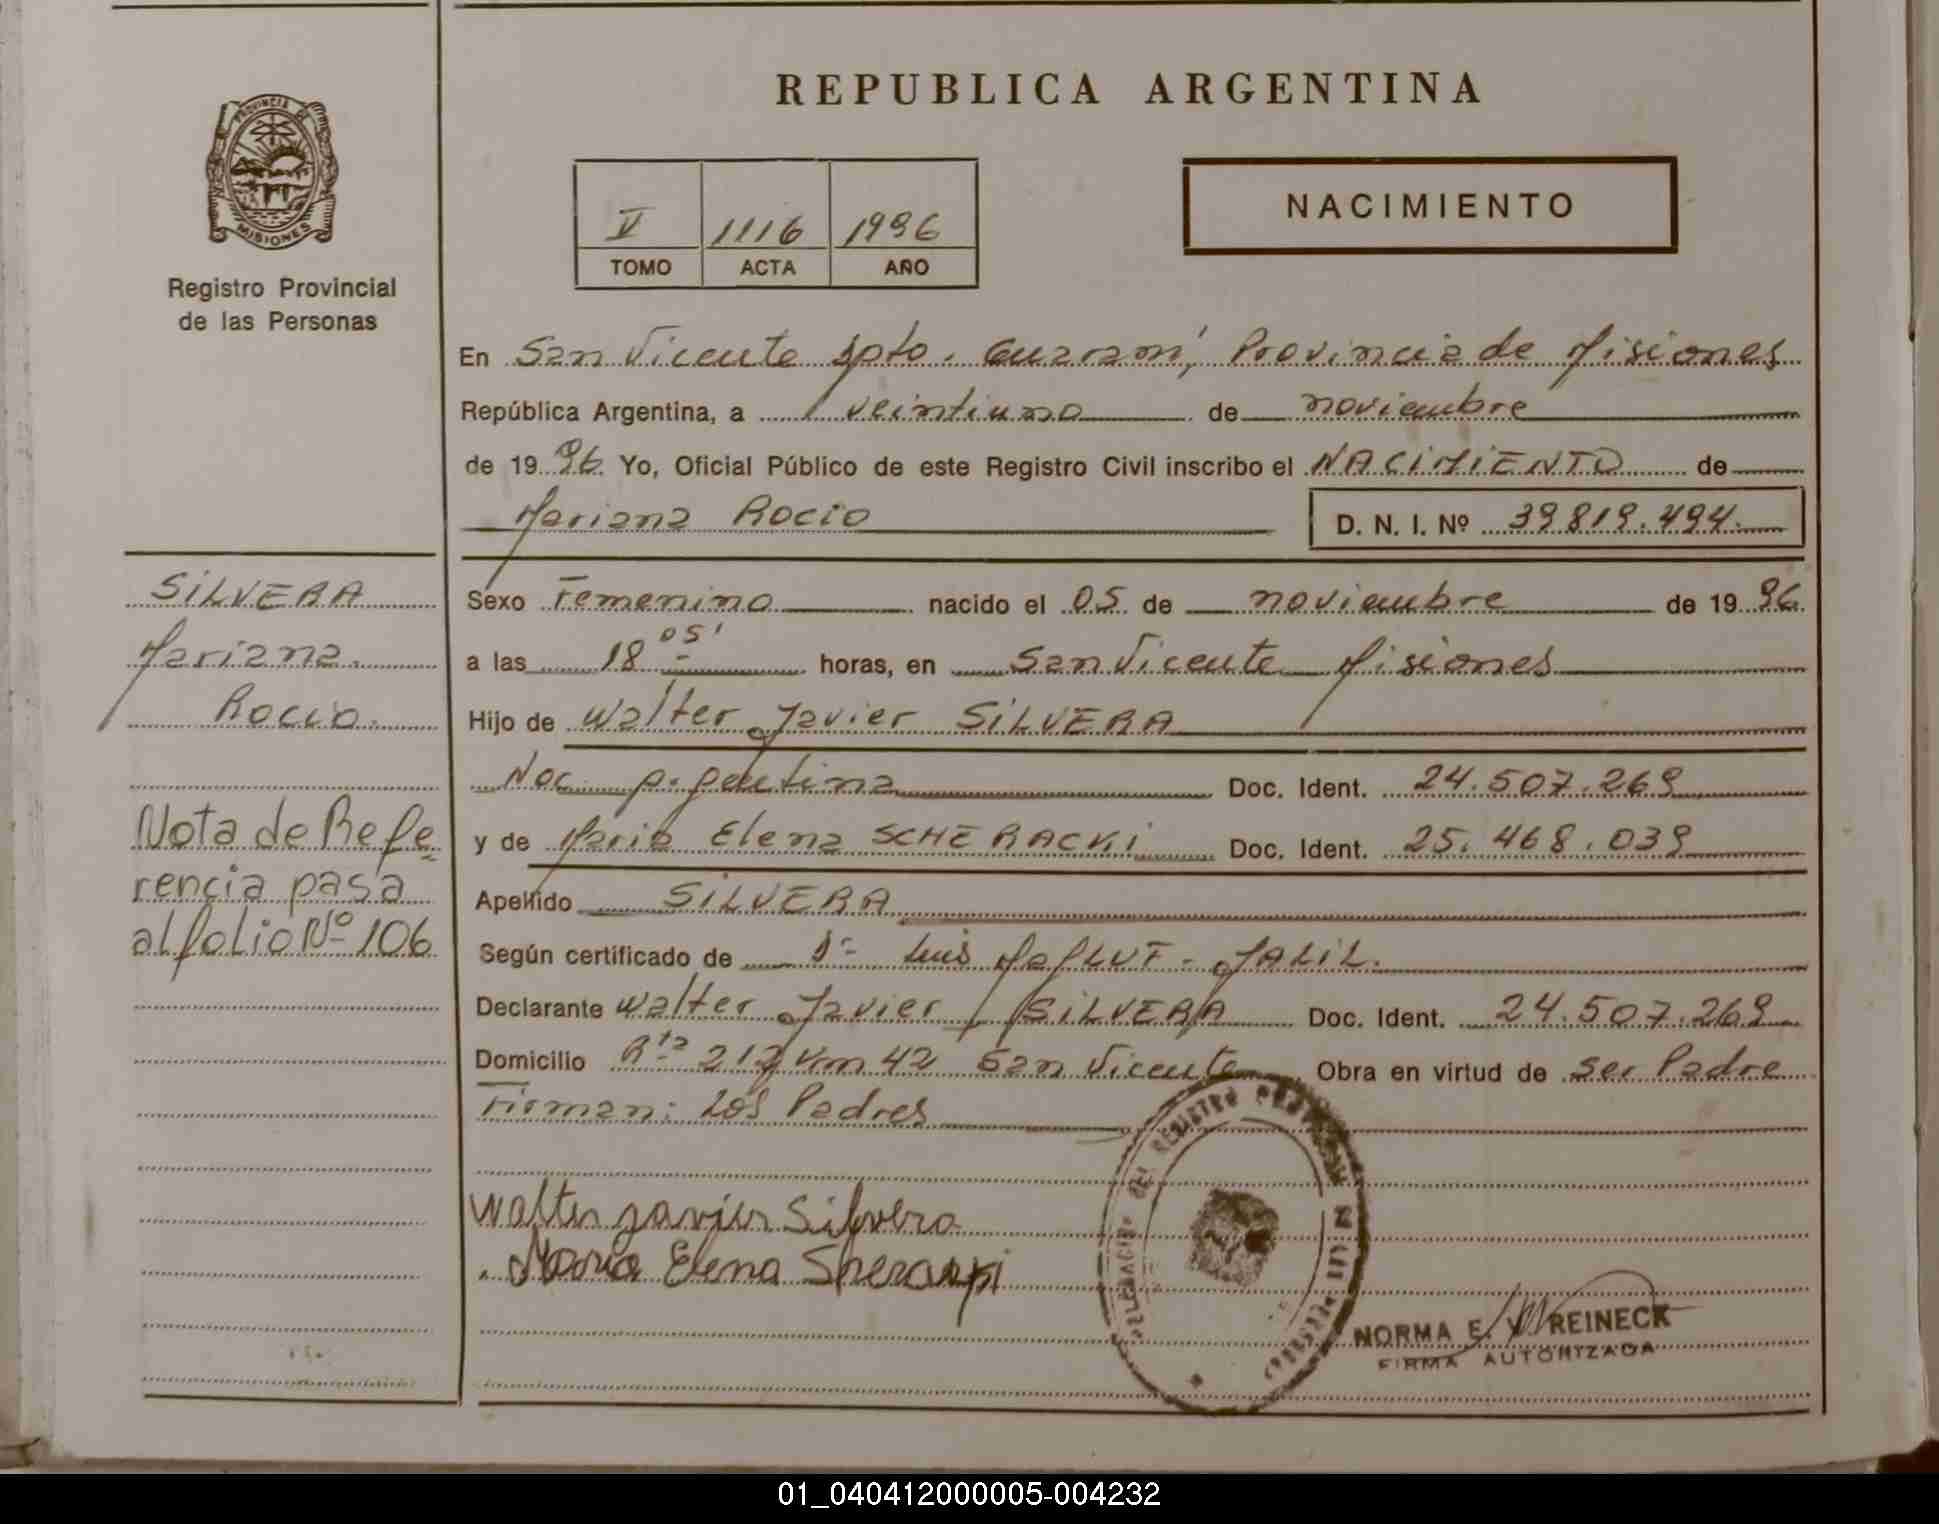 REPUBLICA ARGENTINA
PROVINCIA DE
MISIONES
Registro Provincial
de las Personas
V 1116 1996
TOMO ACTA AÑO
NACIMIENTO
En San Vicente Dpto. Guaraní, Provincia de Misiones
República Argentina, a veintiuno de noviembre
de 1996. Yo, Oficial Público de este Registro Civil inscribo el NACIMIENTO de
Mariana Rocio
D. N. I. Nº 39819.494.
SILVERA
Mariana
Rocio.
Nota de Refe
rencia pasa
al folio Nº 106
Sexo Femenino nacido el 05 de noviembre de 1996.
a las 18 05' horas, en San Vicente Misiones
Hijo de Walter Javier SILVERA
Nac. Argentina Doc. Ident. 24.507.269
y de Maria Elena SCHERACKI Doc. Ident. 25.468.039
Apellido SILVERA
Según certificado de Dr Luis JALIL.
Declarante Walter Javier SILVERA Doc. Ident. 24.507.269
Domicilio Rta 212 Km 42 San Vicente Obra en virtud de ser Padre
Firman: Los Padres
Walter Javier Silvera
Maria Elena
DEL REGISTRO
NORMA E. V. REINECK
FIRMA AUTORIZADA
01_040412000005-004232